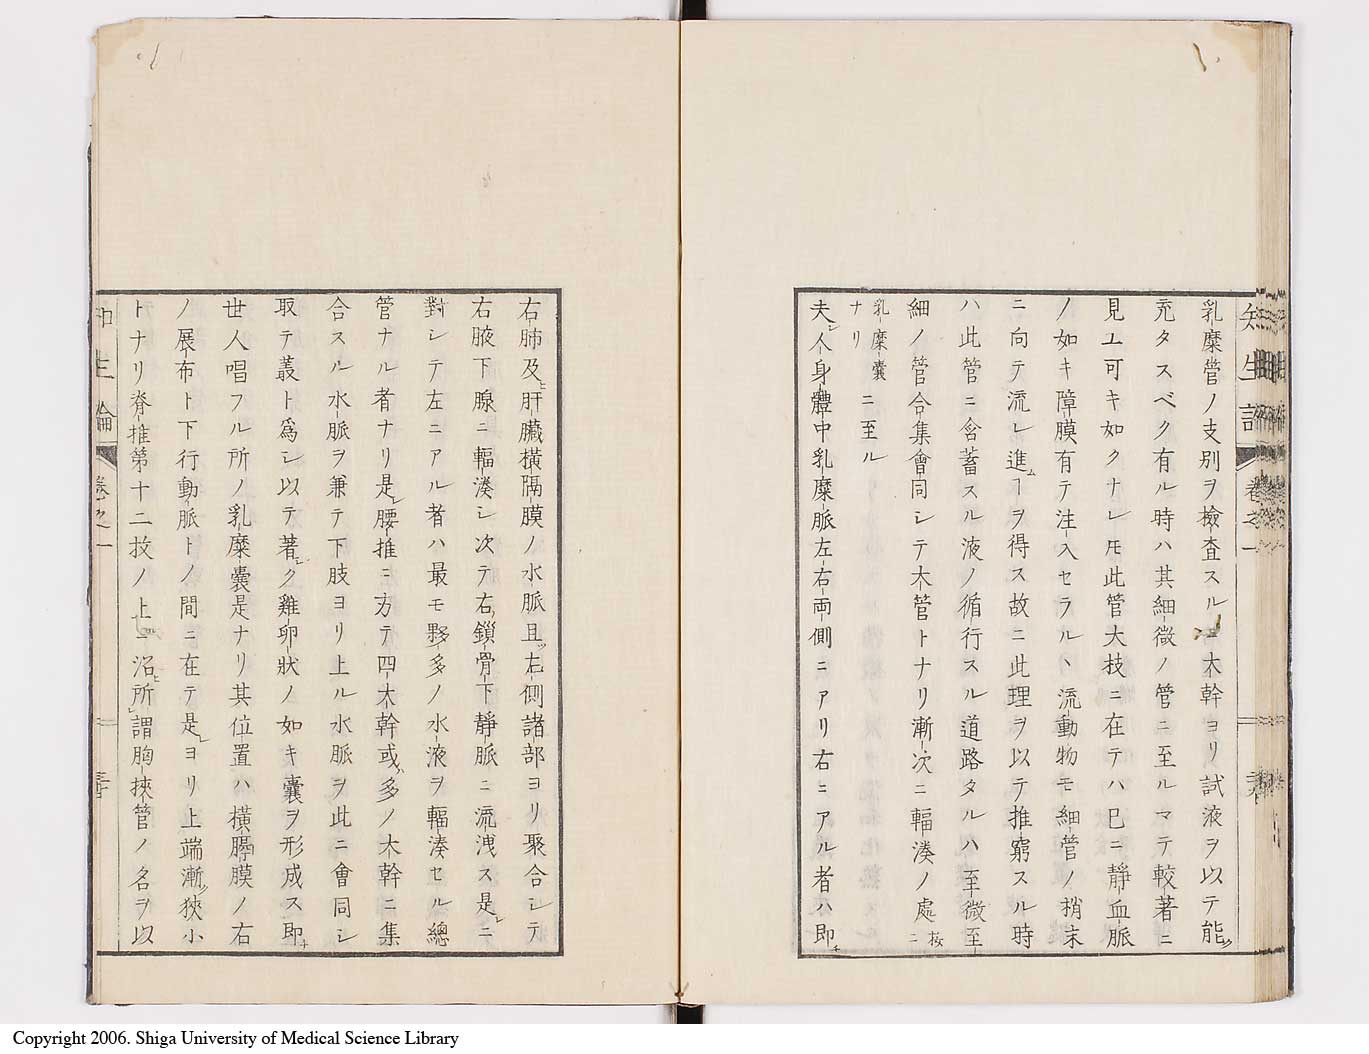 知生論 卷之一
乳糜管ノ支別ヲ檢査スルニ大幹ヨリ試液ヲ以テ能ク
充タスベク有ル時ハ其細微ノ管ニ至ルマテ較著ニ
見ユ可キ如クナレ𪜈此管大枝ニ在テハ已ニ靜血脈
ノ如キ障膜有テ注入セラルヽ流動物モ細管ノ梢末
ニ向テ流レ進ムヿヲ得ス故ニ此理ヲ以テ推窮スル時
ハ此管ニ含蓄スル液ノ循行スル道路タルハ至微至
細ノ管合集會同シテ大管トナリ漸次ニ輻湊ノ處ニ
按ニ乳糜囊ナリ
ニ至ル
夫レ人身體中乳糜脈左右両側ニアリ右ニアル者ハ即チ
右肺及ヒ肝臟橫隔膜ノ水脈且ツ左側諸部ヨリ聚合シテ
右腋下腺ニ輻湊シ次テ右ノ鎖骨下靜脈ニ流洩ス是レニ
對シテ左ニアル者ハ最モ夥多ノ水液ヲ輻湊セル總
管ナル者ナリ是レ腰椎ニ方テ四大幹或ハ多ノ大幹ニ集
合スル水脈ヲ兼テ下肢ヨリ上ル水脈ヲ此ニ會同シ
取テ叢ト爲シ以テ著シク雞卵狀ノ如キ囊ヲ形成ス即チ
世人唱フル所ノ乳糜囊是ナリ其位置ハ橫膈膜ノ右
ノ展布ト下行動脈トノ間ニ在テ是レヨリ上端漸ク狹小
トナリ脊椎第十二枚ノ上ニ沿ヒ所謂胸挾管ノ名ヲ以
知生論 卷之一